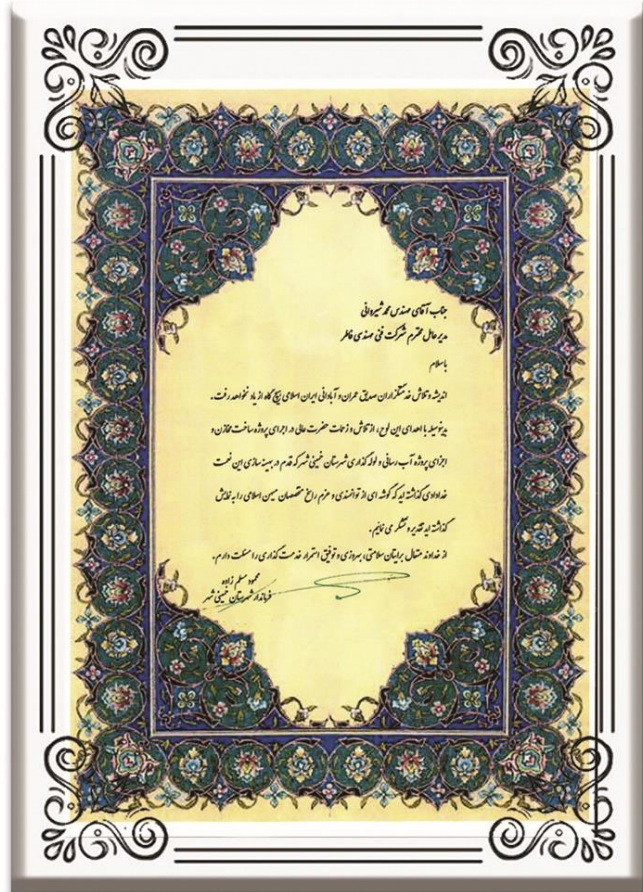 جناب آقای مهندس محمد شیروانی
مدیر عامل محترم شرکت فنی مهندسی فاطر
باسلام
اندیشه و تلاش خدمتگزاران صدیق عمران و آبادانی ایران اسلامی هیچ گاه از یاد نخواهد رفت.
بدینوسیله با اهدای این لوح، از تلاش و زحمات حضرت عالی در اجرای پروژه ساخت مخازن و
اجرای پروژه آب رسانی و لوله گذاری شهرستان خمینی شهر که قدم در بهینه سازی این نعمت
خدادادی گذاشته اید که گوشه ای از توانمندی و عزم راسخ متخصصان میهن اسلامی را به نمایش
گذاشته اید تقدیر و تشکر می نمایم.
از خداوند متعال برایتان سلامتی، بهروزی و توفیق استمرار خدمت گذاری را مسئلت دارم.
محمود مسلم زاده
فرماندار شهرستان خمینی شهر